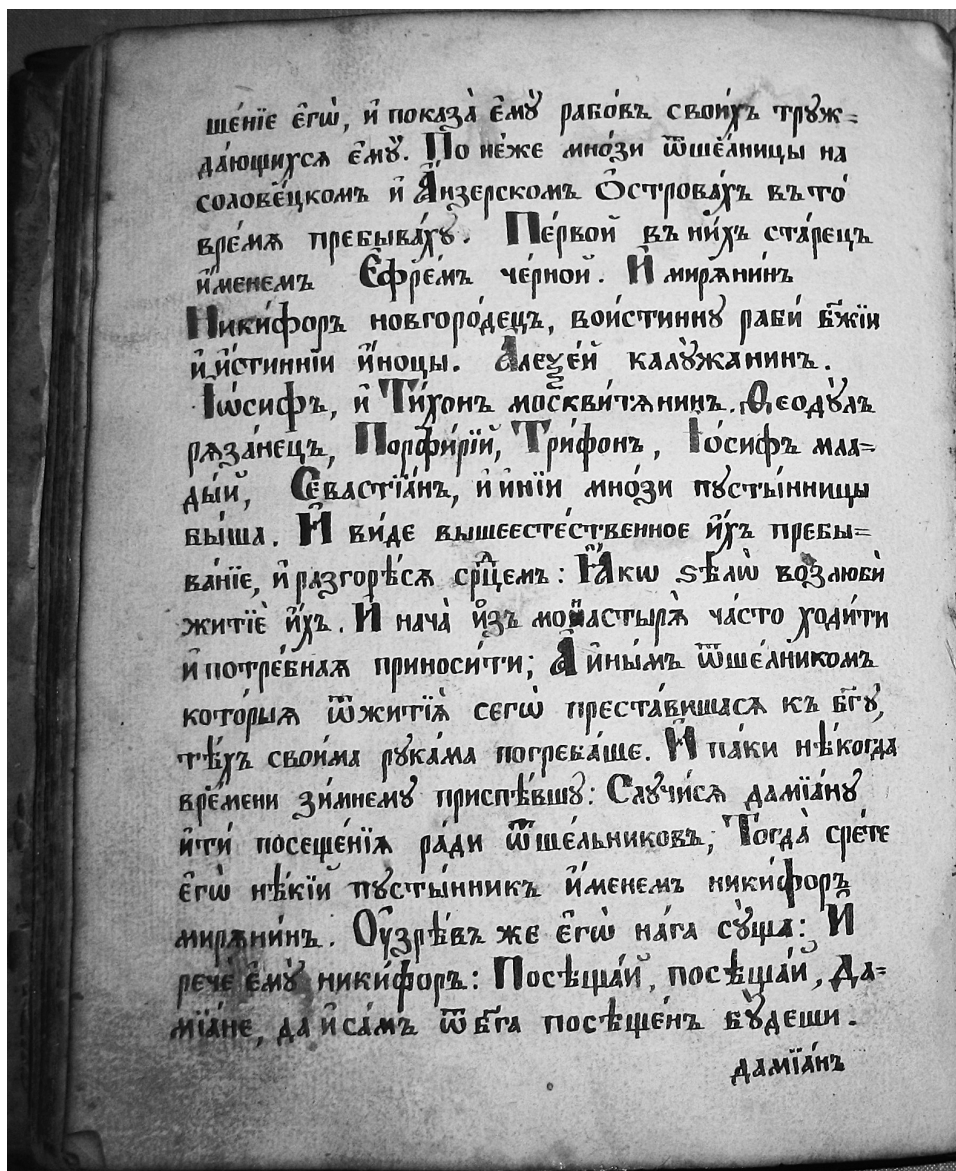 ще́нїе є҆гѡ̀, и҆ показа̀ є҆мꙋ̀ рабо́въ свои́хъ трꙋж=
да́ющихсѧ є҆мꙋ̀. По не́же мно́зи ѿше́лницы на
солове́цкомъ и҆ А҆нзерскомъ Ѻ҆строва́хъ въ то́
вре́мѧ пребыва́хꙋ. Пе́рвой въ ни́хъ ста́рецъ
и҆́менемъ Є҆фре́мъ че́рной. И҆ мирѧни́нъ
Ники́форъ новгоро́децъ, вои́стиннꙋ раби́ бж҃їи
и҆ и҆́стиннїи и҆́ноцы. А҆леѯе́й калꙋ́жанинъ.
І҆ѡ́сифъ, и҆ Ти́хонъ москви́тѧнинъ. Ѳ҆еодꙋ́лъ
рѧза́нецъ, Порфи́рїй, Три́фонъ, І҆о́сифъ мла=
ды́й, Севастїа́нъ, и҆ и҆нїи мно́зи пꙋсты́нницы
бы́ша. И҆ ви́де вышеесте́ственное и҆́хъ пребы=
ва́нїе, и҆ разгорѣ́сѧ срⷣцемъ: Ꙗ҆́кѡ ѕѣлѡ̀ возлюбѝ
житїѐ и҆́хъ. И҆ нача̀ и҆з̾ монастырѧ̀ ча́сто ходи́ти
и҆ потре́бнаѧ приноси́ти; А҆ и҆ны́мъ ѿше́лникомъ
кото́рыѧ ѿ житїѧ̀ сегѡ̀ преста́вишасѧ къ бг҃ꙋ,
тѣ́хъ свои́ма рꙋка́ма погреба́ше. И҆ па́ки нѣ́когда
вре́мени зи́мнемꙋ приспѣ́вшꙋ: Слꙋчи́сѧ дамїа́нꙋ
и҆ти́ посеще́нїѧ ра́ди ѿше́льниковъ; Тогда̀ сре́те
є҆гѡ̀ нѣ́кїй пꙋсты́нникъ и҆́менемъ ники́форъ
мирѧни́нъ. Оу҆зрѣ́въ же є҆гѡ̀ на́га сꙋ́ща: И҆
рече́ є҆мꙋ̀ ники́форъ: Посѣща́й, посѣща́й, Да=
мїа́не, да и҆ са́мъ ѿ бг҃а посѣще́нъ бꙋ́деши.
дамїа́нъ